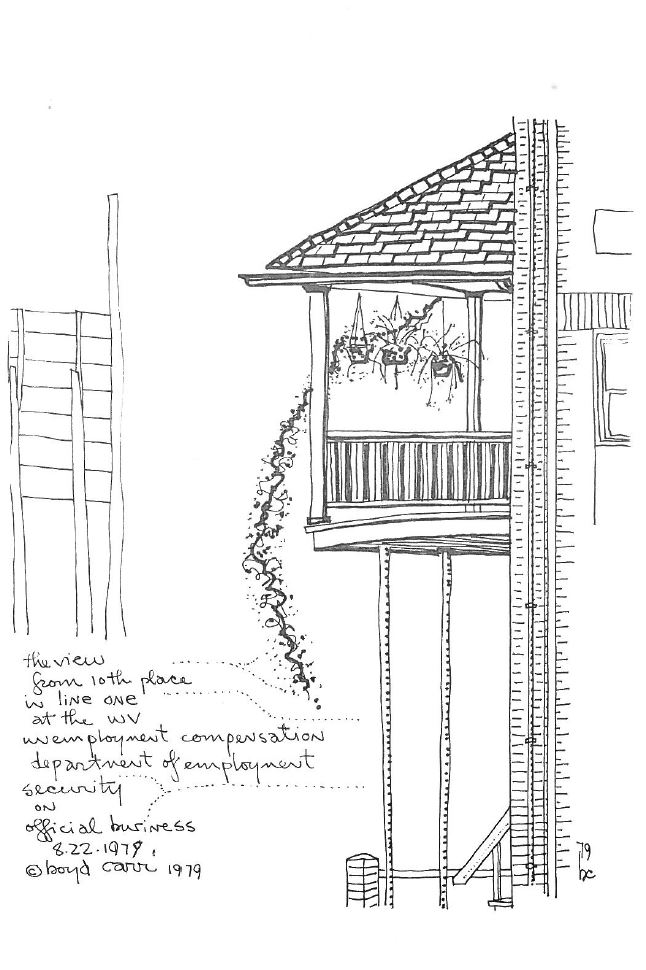 the view
from 10th place
in line one
at the WV
unemployment compensation
department of employment
security
on
official business
8.22.1979.
© boyd carr 1979
79
bc